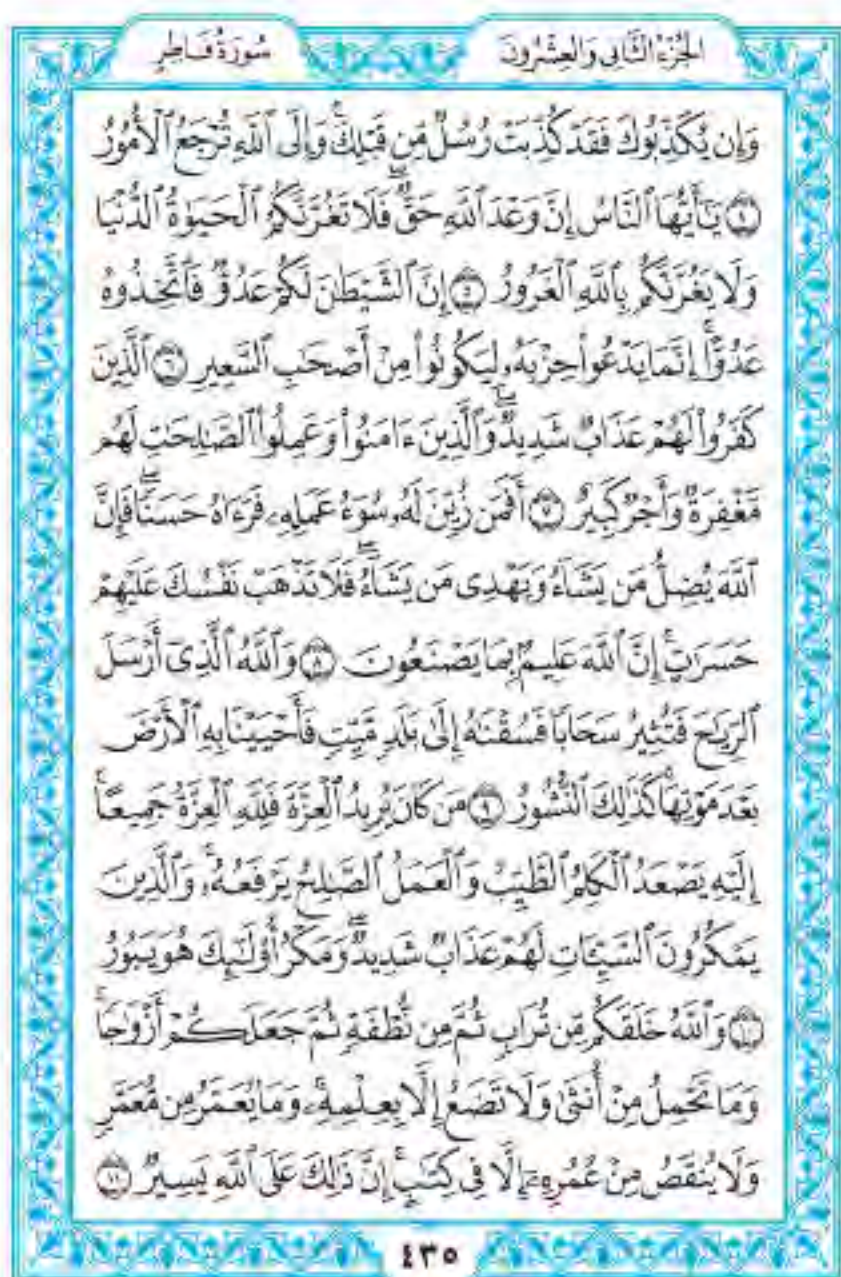 الجُزْءُ الثَّانِي وَالعِشْرُونَ
سُورَةُ فَاطِرٍ
وَإِن يُكَذِّبُوكَ فَقَدْ كُذِّبَتْ رُسُلٌ مِّن قَبْلِكَ ۚ وَإِلَى ٱللَّهِ تُرْجَعُ ٱلْأُمُورُ
٤ يَـٰٓأَيُّهَا ٱلنَّاسُ إِنَّ وَعْدَ ٱللَّهِ حَقٌّ ۖ فَلَا تَغُرَّنَّكُمُ ٱلْحَيَوٰةُ ٱلدُّنْيَا
وَلَا يَغُرَّنَّكُم بِٱللَّهِ ٱلْغَرُورُ ٥ إِنَّ ٱلشَّيْطَـٰنَ لَكُمْ عَدُوٌّ فَٱتَّخِذُوهُ
عَدُوًّا ۚ إِنَّمَا يَدْعُوا۟ حِزْبَهُۥ لِيَكُونُوا۟ مِنْ أَصْحَـٰبِ ٱلسَّعِيرِ ٦ ٱلَّذِينَ
كَفَرُوا۟ لَهُمْ عَذَابٌ شَدِيدٌ ۖ وَٱلَّذِينَ ءَامَنُوا۟ وَعَمِلُوا۟ ٱلصَّـٰلِحَـٰتِ لَهُم
مَّغْفِرَةٌ وَأَجْرٌ كَبِيرٌ ٧ أَفَمَن زُيِّنَ لَهُۥ سُوٓءُ عَمَلِهِۦ فَرَءَاهُ حَسَنًا ۖ فَإِنَّ
ٱللَّهَ يُضِلُّ مَن يَشَآءُ وَيَهْدِى مَن يَشَآءُ ۖ فَلَا تَذْهَبْ نَفْسُكَ عَلَيْهِمْ
حَسَرَٰتٍ ۚ إِنَّ ٱللَّهَ عَلِيمٌۢ بِمَا يَصْنَعُونَ ٨ وَٱللَّهُ ٱلَّذِىٓ أَرْسَلَ
ٱلرِّيَـٰحَ فَتُثِيرُ سَحَابًا فَسُقْنَـٰهُ إِلَىٰ بَلَدٍ مَّيِّتٍ فَأَحْيَيْنَا بِهِ ٱلْأَرْضَ
بَعْدَ مَوْتِهَا ۚ كَذَٰلِكَ ٱلنُّشُورُ ٩ مَن كَانَ يُرِيدُ ٱلْعِزَّةَ فَلِلَّهِ ٱلْعِزَّةُ جَمِيعًا ۚ
إِلَيْهِ يَصْعَدُ ٱلْكَلِمُ ٱلطَّيِّبُ وَٱلْعَمَلُ ٱلصَّـٰلِحُ يَرْفَعُهُۥ ۚ وَٱلَّذِينَ
يَمْكُرُونَ ٱلسَّيِّـَٔاتِ لَهُمْ عَذَابٌ شَدِيدٌ ۖ وَمَكْرُ أُو۟لَـٰٓئِكَ هُوَ يَبُورُ
١٠ وَٱللَّهُ خَلَقَكُم مِّن تُرَابٍ ثُمَّ مِن نُّطْفَةٍ ثُمَّ جَعَلَكُمْ أَزْوَٰجًا ۚ
وَمَا تَحْمِلُ مِنْ أُنثَىٰ وَلَا تَضَعُ إِلَّا بِعِلْمِهِۦ ۚ وَمَا يُعَمَّرُ مِن مُّعَمَّرٍ
وَلَا يُنقَصُ مِنْ عُمُرِهِۦٓ إِلَّا فِى كِتَـٰبٍ ۚ إِنَّ ذَٰلِكَ عَلَى ٱللَّهِ يَسِيرٌ ١١
٤٣٥